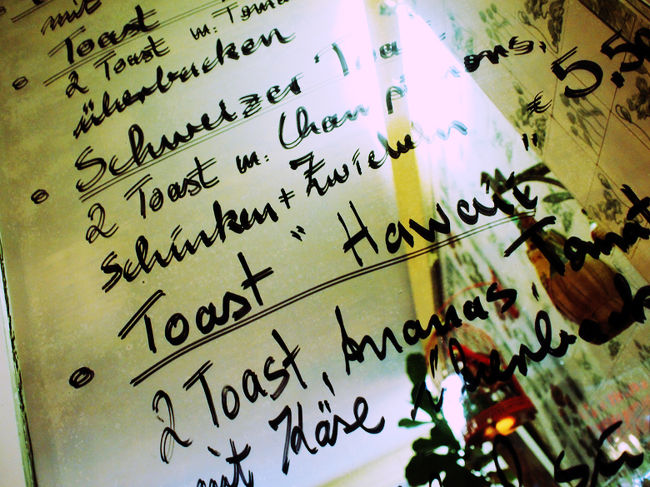 mit
Toast
2 Toast m. Toma
überbacken
Schweizer Toast
2 Toast m. Champignons,
Schinken + Zwiebeln € 5.50
Toast "Hawaii"
2 Toast, Ananas, Tomat
mit Käse überback